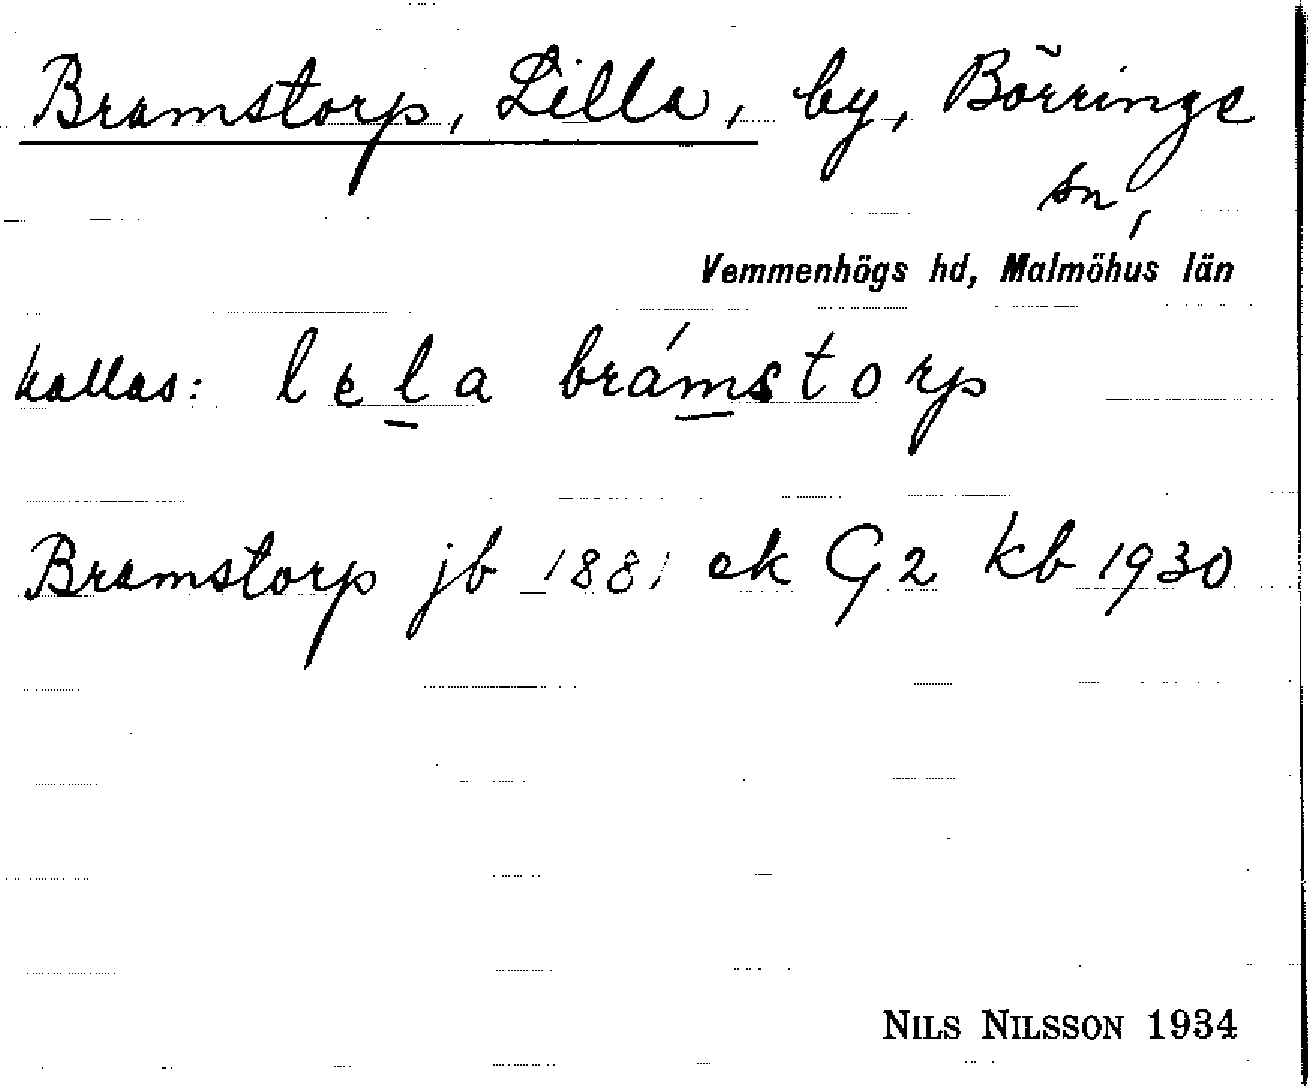 Bramstorp, Lilla, by, Börringe
sn,
Vemmenhögs hd, Malmöhus län
kallas: lela brámstorp
Bramstorp jb 1881 ek G2 kb 1930
NILS NILSSON 1934